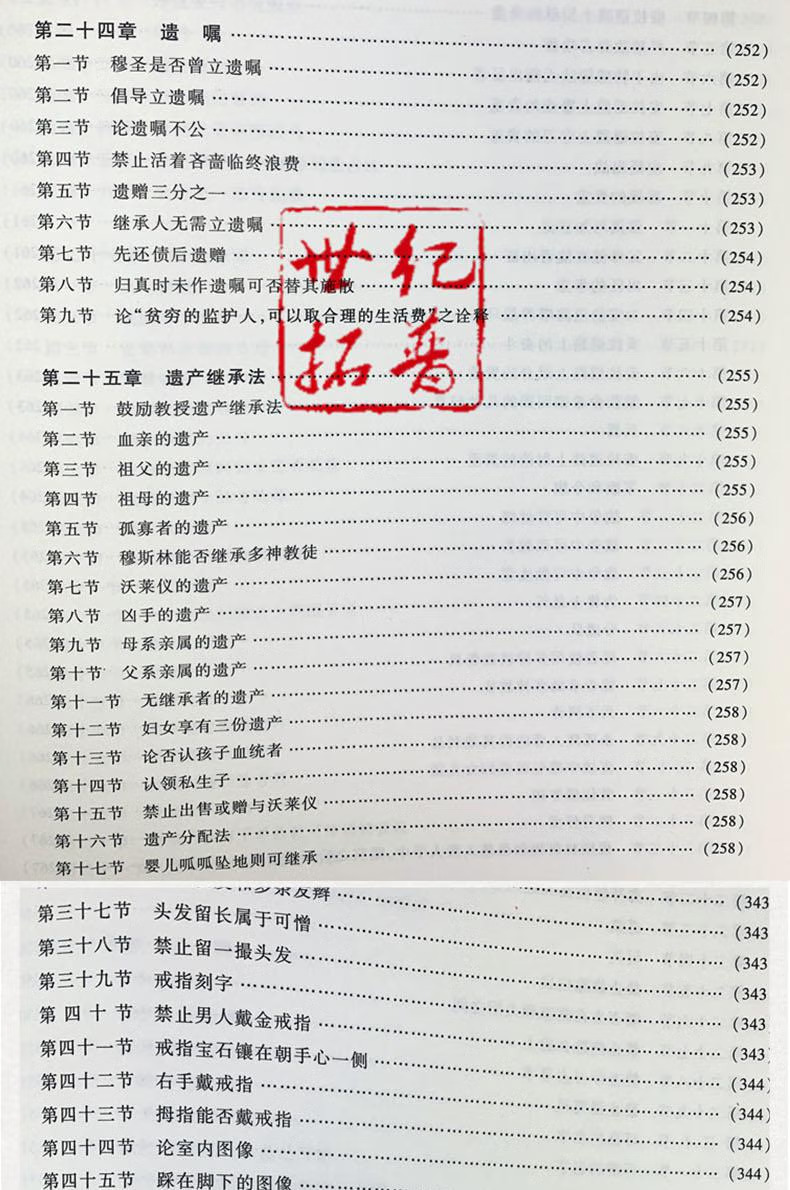 第二十四章 遗 嘱 ……………… (252)
第一节 穆圣是否曾立遗嘱 ……………… (252)
第二节 倡导立遗嘱 ……………… (252)
第三节 论遗嘱不公 ……………… (252)
第四节 禁止活着吝啬临终浪费 ……………… (253)
第五节 遗赠三分之一 ……………… (253)
第六节 继承人无需立遗嘱 ……………… (253)
第七节 先还债后遗赠 ……………… (254)
第八节 归真时未作遗嘱可否替其施散 ……………… (254)
第九节 论“贫穷的监护人，可以取合理的生活费”之诠释 ……………… (254)
世纪
拓普
第二十五章 遗产继承法 ……………… (255)
第一节 鼓励教授遗产继承法 ……………… (255)
第二节 血亲的遗产 ……………… (255)
第三节 祖父的遗产 ……………… (255)
第四节 祖母的遗产 ……………… (255)
第五节 孤寡者的遗产 ……………… (256)
第六节 穆斯林能否继承多神教徒 ……………… (256)
第七节 沃莱仪的遗产 ……………… (256)
第八节 凶手的遗产 ……………… (257)
第九节 母系亲属的遗产 ……………… (257)
第十节 父系亲属的遗产 ……………… (257)
第十一节 无继承者的遗产 ……………… (257)
第十二节 妇女享有三份遗产 ……………… (258)
第十三节 论否认孩子血统者 ……………… (258)
第十四节 认领私生子 ……………… (258)
第十五节 禁止出售或赠与沃莱仪 ……………… (258)
第十六节 遗产分配法 ……………… (258)
第十七节 婴儿呱呱坠地则可继承 ……………… (258)
和多条发辫 ……………… (343
第三十七节 头发留长属于可憎 ……………… (343
第三十八节 禁止留一撮头发 ……………… (343
第三十九节 戒指刻字 ……………… (343
第四十节 禁止男人戴金戒指 ……………… (343
第四十一节 戒指宝石镶在朝手心一侧 ……………… (343)
第四十二节 右手戴戒指 ……………… (344)
第四十三节 拇指能否戴戒指 ……………… (344)
第四十四节 论室内图像 ……………… (344)
第四十五节 踩在脚下的图像 ……………… (344)